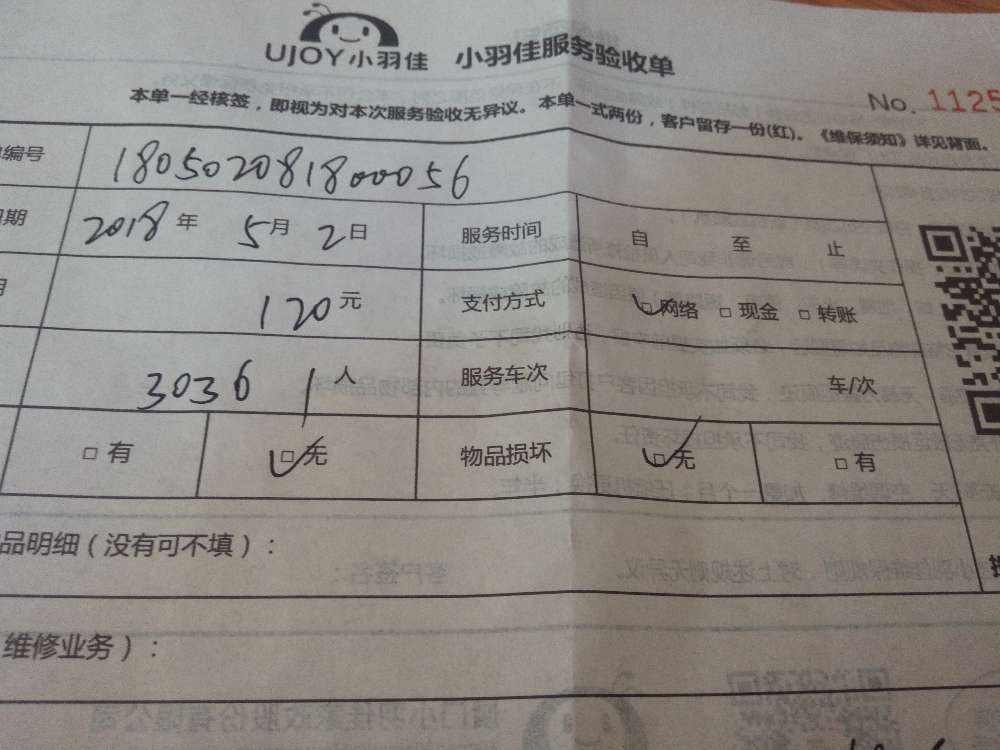 UJOY小羽佳 小羽佳服务验收单
No. 1125
本单一经核签，即视为对本次服务验收无异议。本单一式两份，客户留存一份(红)。《维保须知》详见背面。
编号 180502081800056
期 2018年 5月 2日 服务时间 自 至 止
120元 支付方式 □网络 □现金 □转账
3036 1人 服务车次 车/次
□有 □无 物品损坏 □无 □有
品明细（没有可不填）：
维修业务）：